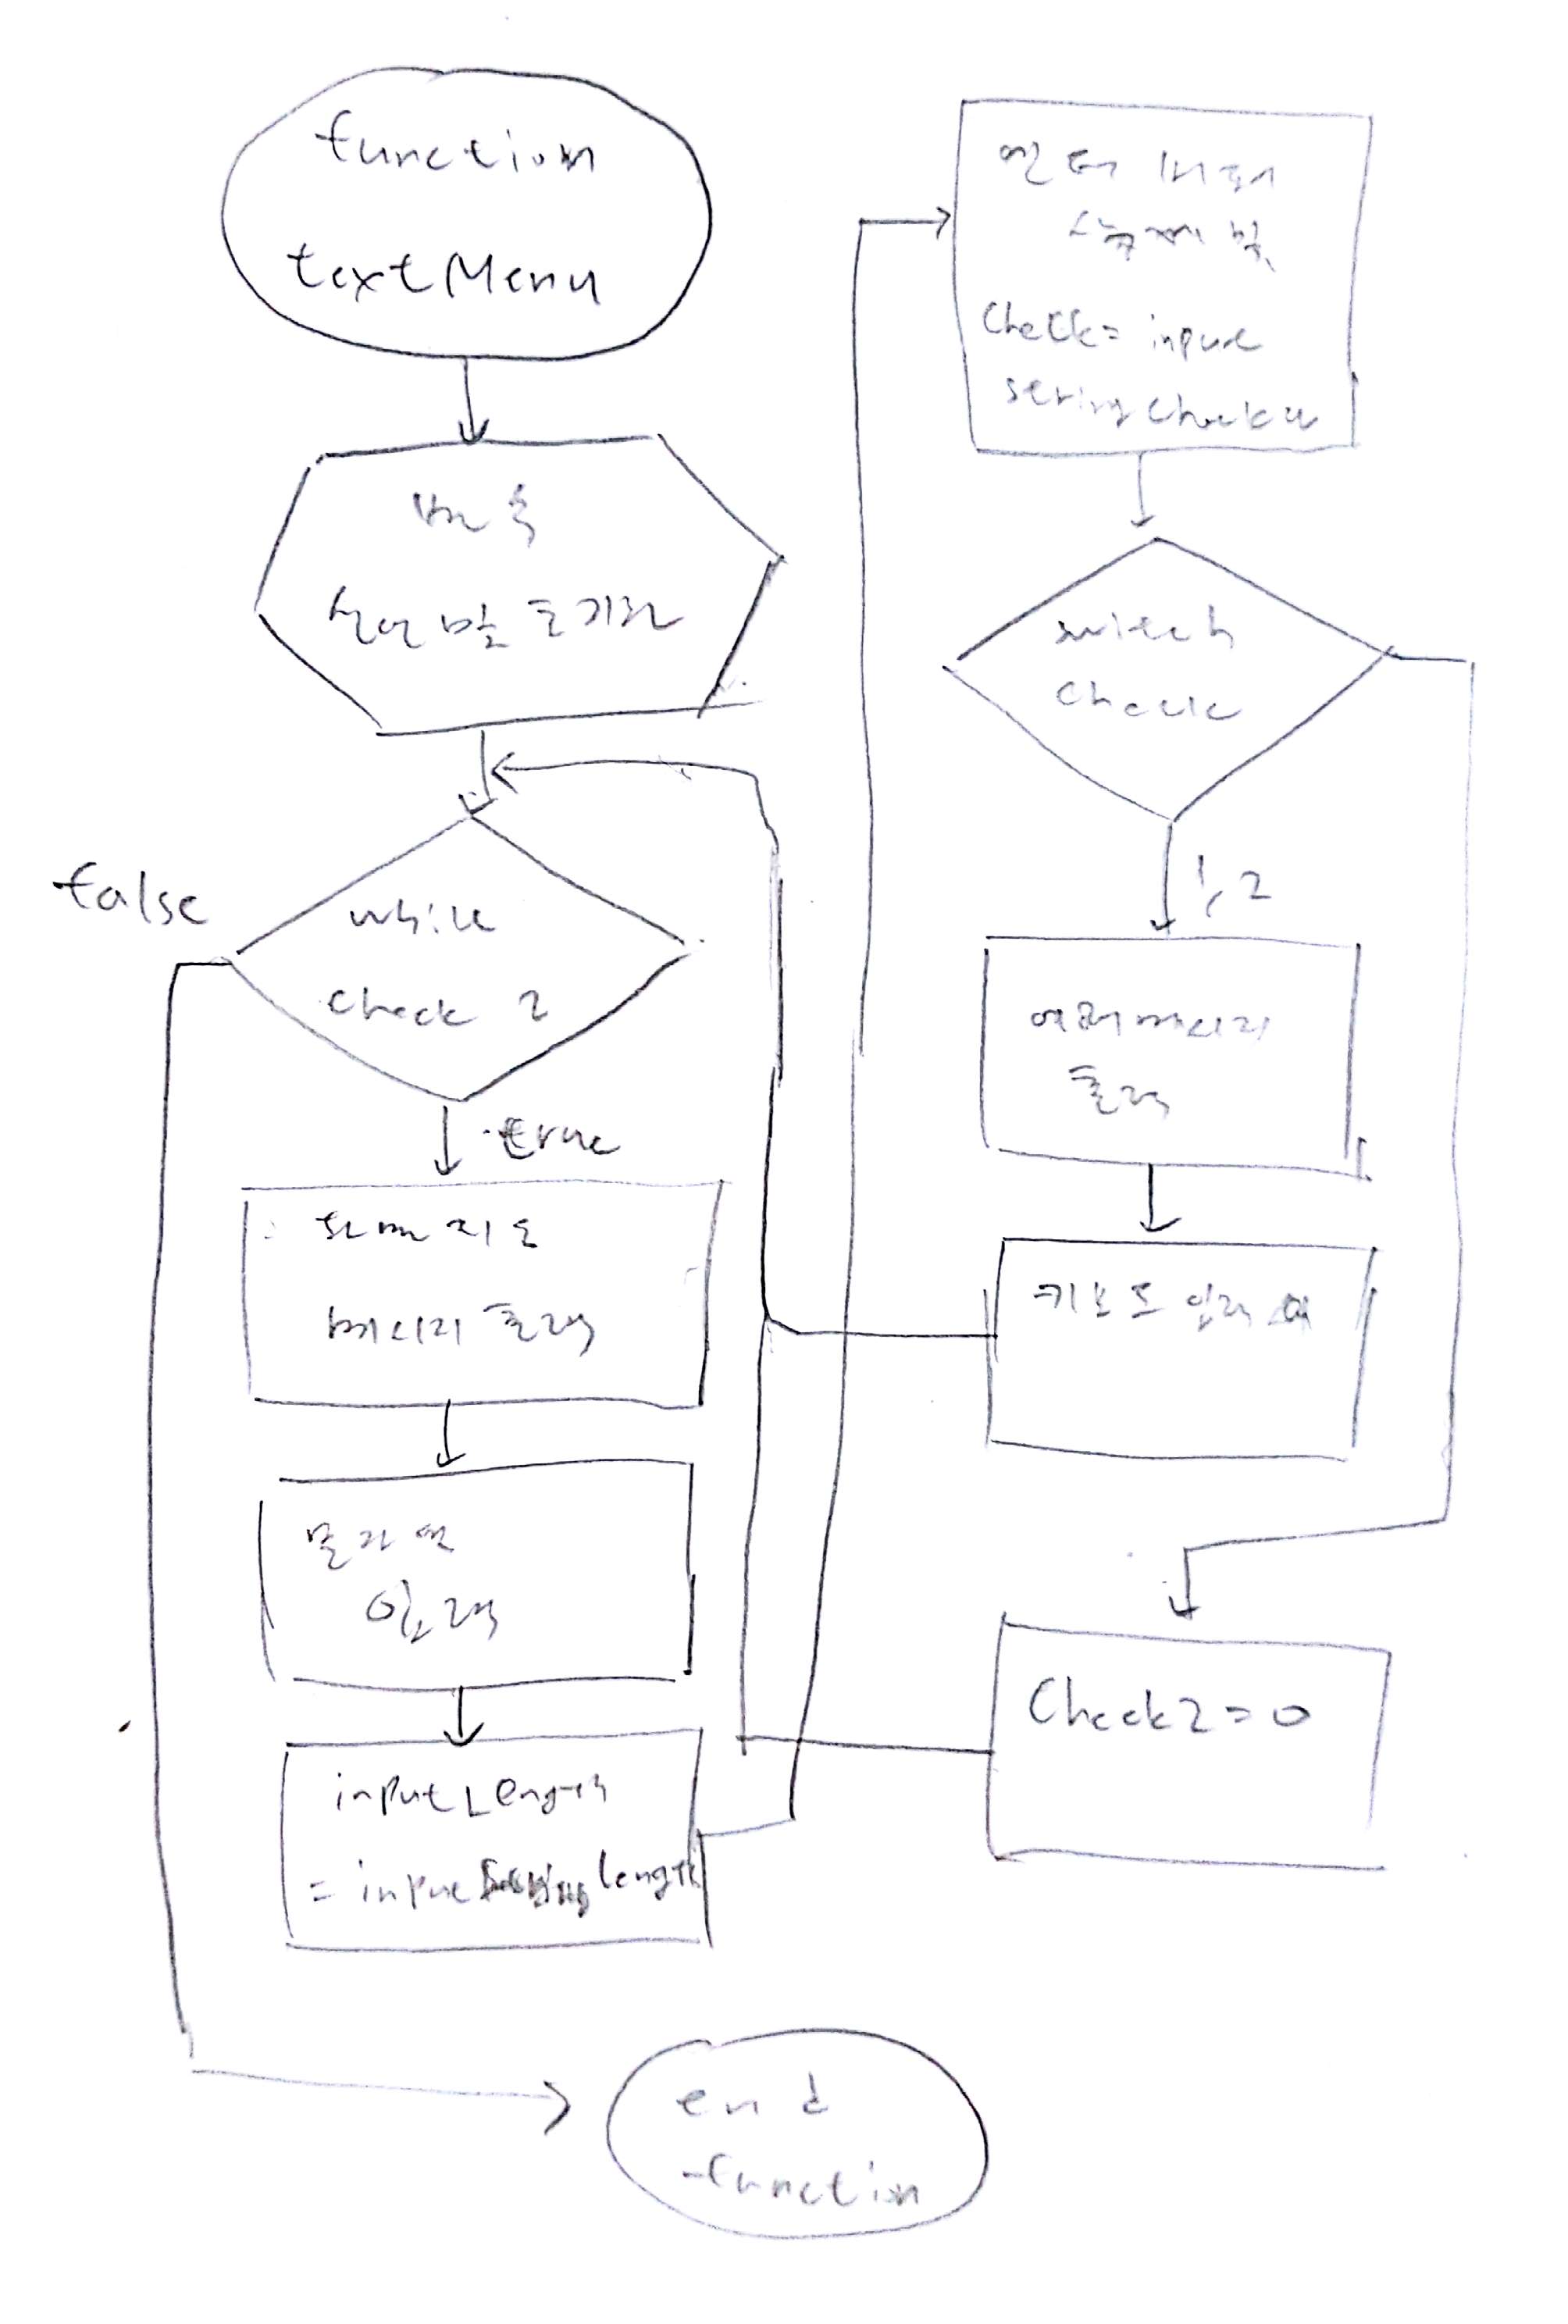 function
textMenu
변수
선언 및 초기화
while
check 2
false
true
화면 지운
메시지 출력
문자열
입력
inputLength
= input length
엔터 버퍼
삭제 및
Check = input
string checker
switch
check
1, 2
에러 메시지
출력
키보드 입력
Check2 = 0
end
function